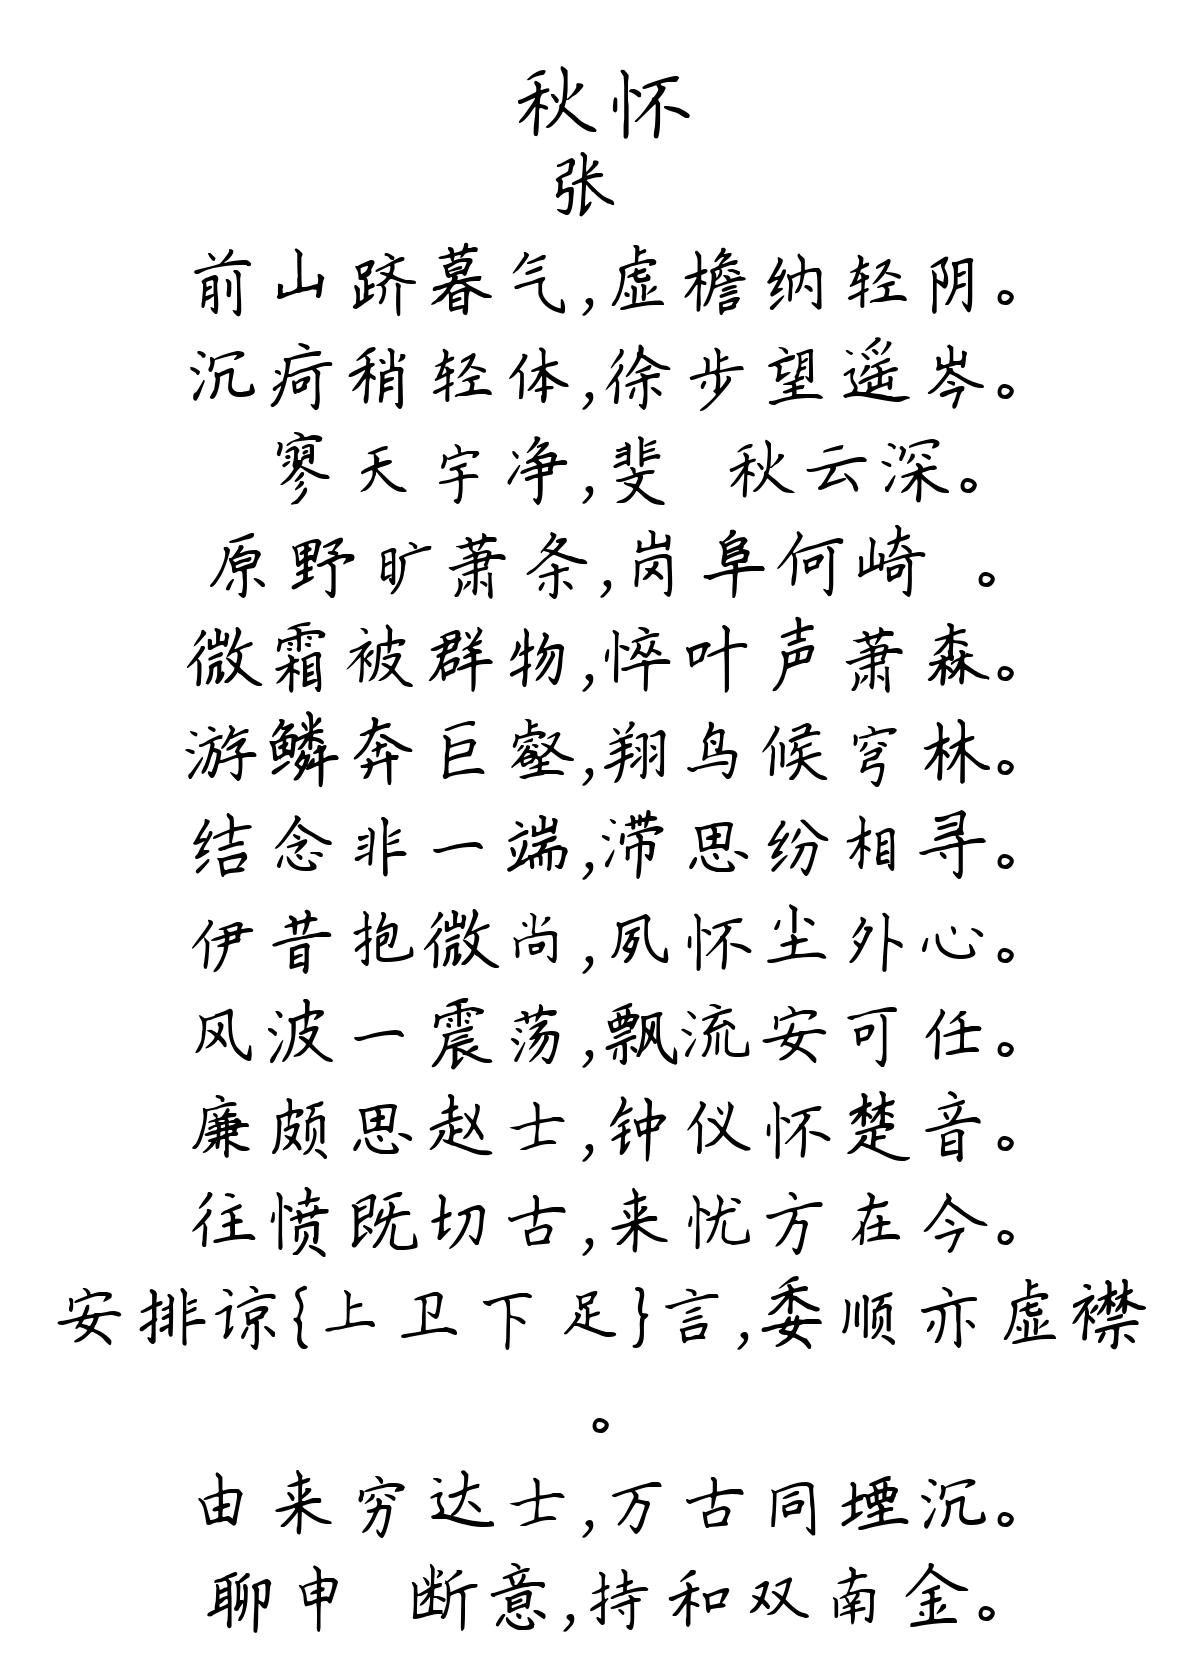 秋怀
张
前山跻暮气,虚檐纳轻阴。
沉疴稍轻体,徐步望遥岑。
寥天宇净,斐 秋云深。
原野旷萧条,岗阜何崎 。
微霜被群物,悴叶声萧森。
游鳞奔巨壑,翔鸟候穹林。
结念非一端,滞思纷相寻。
伊昔抱微尚,夙怀尘外心。
风波一震荡,飘流安可任。
廉颇思赵士,钟仪怀楚音。
往愤既切古,来忧方在今。
安排谅{上卫下足}言,委顺亦虚襟
。
由来穷达士,万古同堙沉。
聊申 断意,持和双南金。